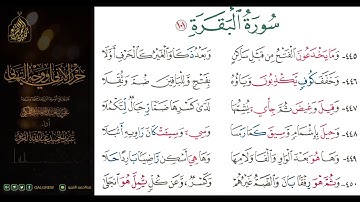 سُورَةُ الْبَقَرَةِ (١٠١)
٤٤٥- وَمَا يَخْدَعُونَ الْفَتْحُ مِنْ قَبْلِ سَاكِنٍ وَبَعْدُ ذَكَا وَالْغَيْرُ كَالْحَرْفِ أَوَّلَا
٤٤٦- وَخَفَّفَ كُوفٍ يَكْذِبُونَ وَيَاؤُهُ بِفَتْحٍ وَلِلْبَاقِينَ ضُمَّ وَثُقِّلَا
٤٤٧- وَقِيلَ وَغِيضَ ثُمَّ جِايءَ يُشِمُّهَا لَدَى كَسْرِهَا ضَمًّا رِجَالٌ لِتَكْمُلَا
٤٤٨- وَحِيلَ بِإِشْمَامٍ وَسِيقَ كَمَا رَسَا وَسِيءَ وَسِيئَتْ كَانَ رَاوِيهِ أَنْبَلَا
٤٤٩- وَهَا هُوَ بَعْدَ الْوَاوِ وَالْفَا وَلَامِهَا وَهَا هِيَ أَسْكِنْ رَاضِيًا بَارِدًا حَلَا
٤٥٠- وَثُمَّ هُوَ رِفْقًا بَانَ وَالضَّمُّ غَيْرُهُمْ وَكَسْرٌ، وَعَنْ كُلٍّ يُمِلَّ هُوَ انْجَلَى
حرز الأماني ووجه التهاني